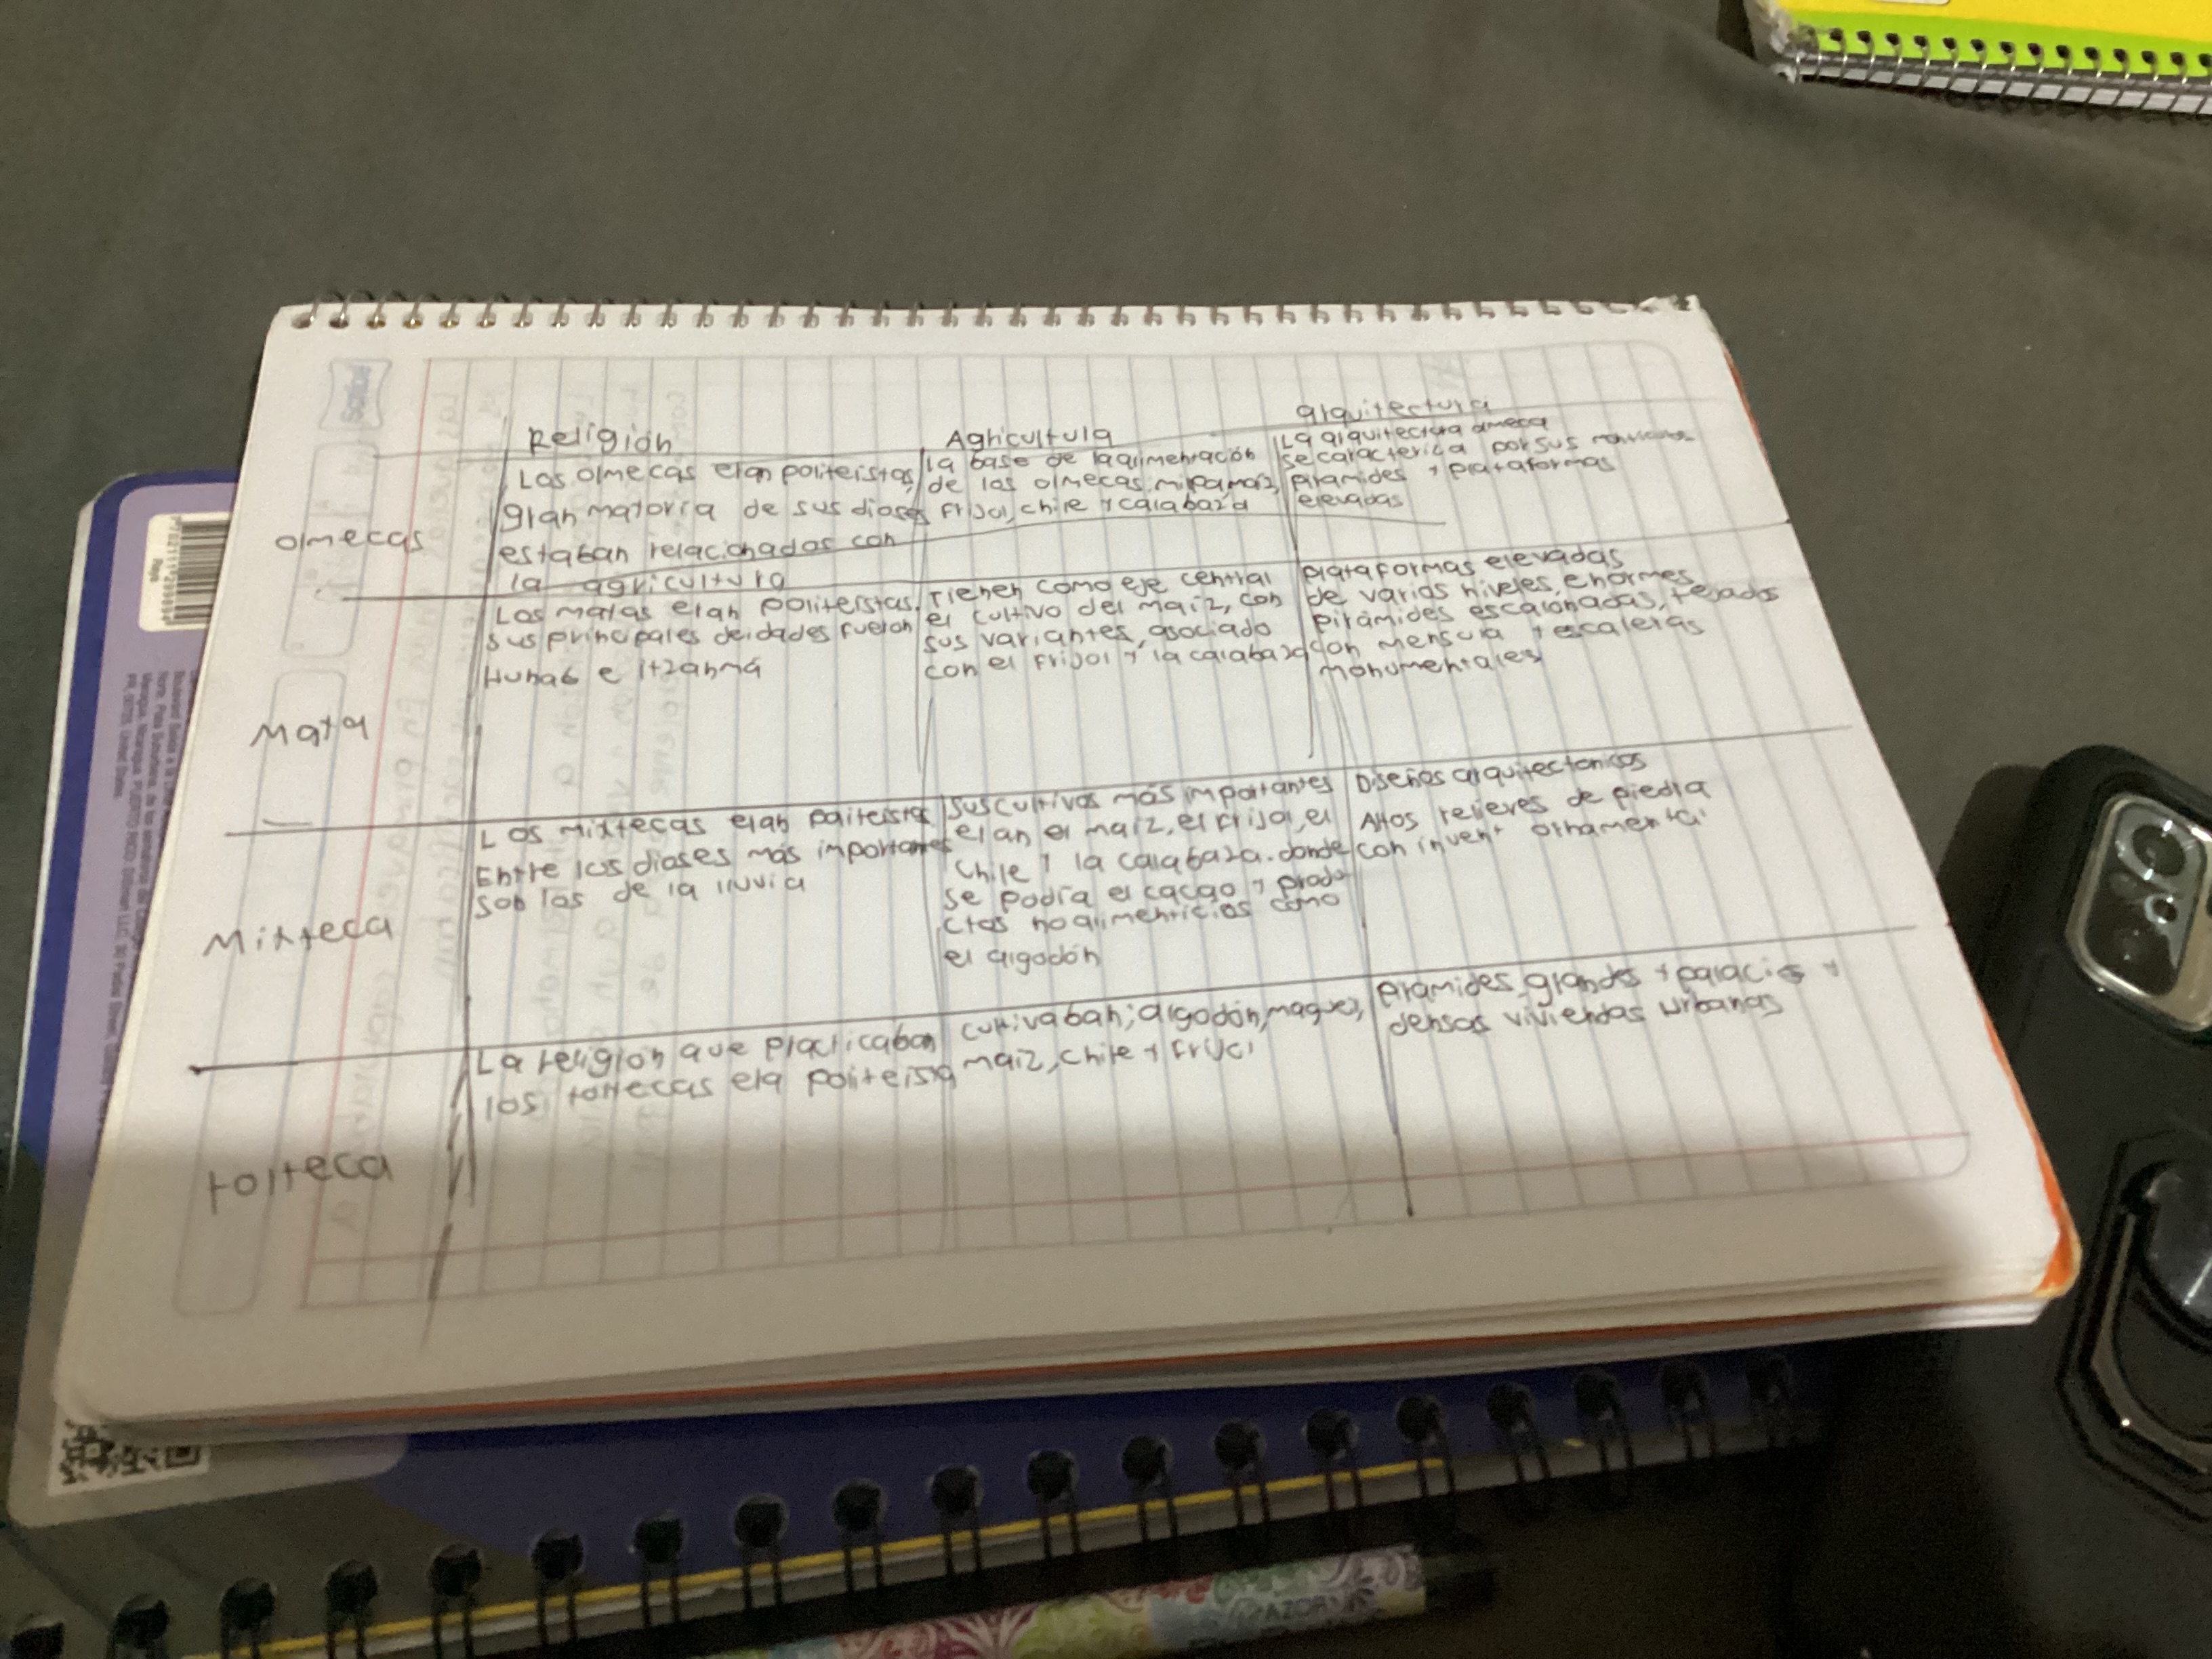 Religión
Agricultura
arquitectura
olmecas
Los olmecas eran politeistas,
gran mayoria de sus dioses
estaban relacionados con
la agricultura
la base de la alimentación
de los olmecas: maiz,
frijol, chile y calabaza
La arquitectura olmeca
se caracteriza por sus
piramides y plataformas
elevadas
Maya
Los mayas eran politeistas.
sus principales deidades fueron
Hunab e Itzanmá
Tienen como eje central
el cultivo del maíz, con
sus variantes, asociado
con el frijol y la calabaza
plataformas elevadas
de varios niveles, enormes
pirámides escalonadas, tejados
con mensura y escaleras
monumentales
Mixteca
Los mixtecas eran paiteista
Entre los dioses más importantes
son los de la lluvia
sus cultivos más importantes
eran el maiz, el frijol, el
chile y la calabaza. donde
se podía el cacao y produ
ctos no alimenticios como
el algodón
Diseños arquitectonicos
Altos relieves de piedra
con invent ornamental
tolteca
La religión que practicaban
los toltecas era politeista
cultivaban; algodón, maguey,
maiz, chile y frijol
piramides grandes y palacios y
densas viviendas urbanas